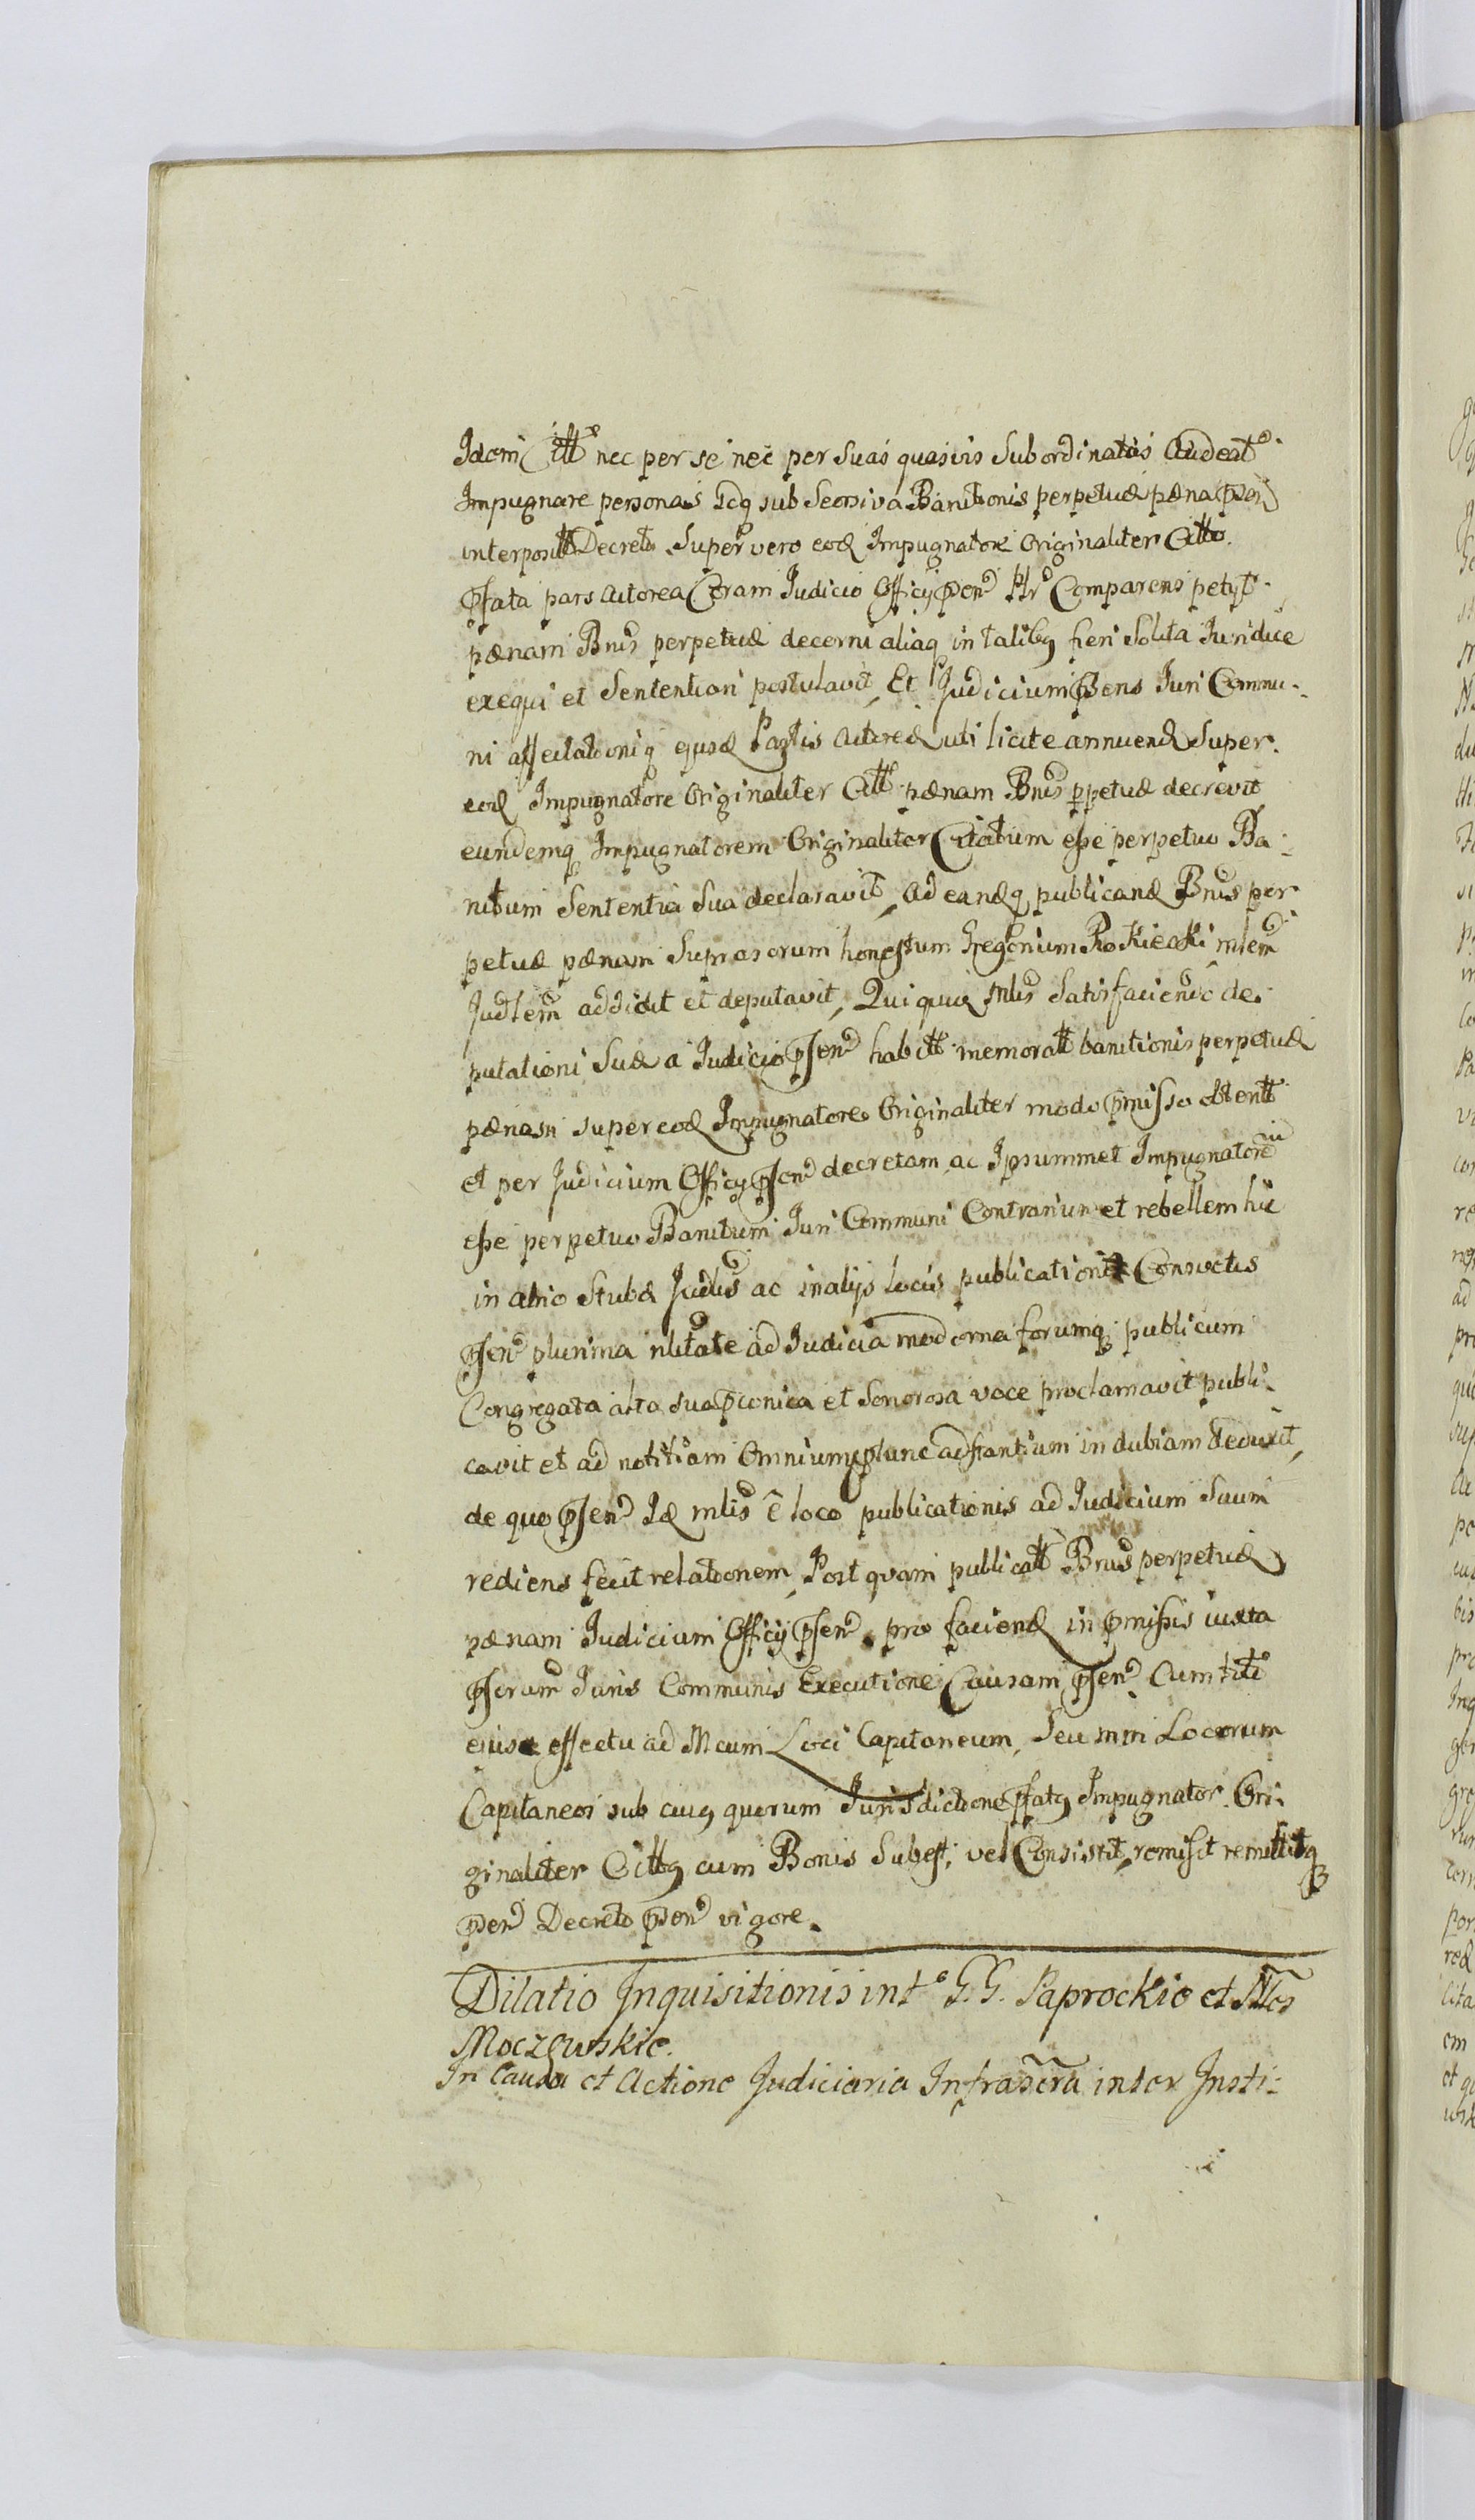 Idem Citt9 nec per se nec per Suas quasvis Subordinatas Audeat
Impugnare personas Idq sub Seorsiva Banitionis perpetuæ pæna
interpositt Decreto. Super vero eod Impugnatore Originaliter Citto.
Pfata pars Actorea Coram Judicio Officij Psen Ptr Comparens petyt
pænam Bnis perpetuæ decerni aliaq in talibq fieri Solita Juridice
exequi et Sententiari postulavit, Et Judicium Psens Juri Commu-
ni affectationiq ejusd Partis Actoreæ uti licite annuend Super
eod Impugnatore Originaliter Citt pænam Bnis ppetuæ decrevit
eundemq Impugnatorem Originaliter Citatum eße perpetuo Ba-
nitum Sententia Sua declaravit, Ad eandq publicand Bnis per
petuæ pænam Suprascrum honestum Gregorium mlem
Judlem addidit et deputavit, Qui quid Mlis Satisfaciendo de
putationi Suæ a Judicio Psen habitt memoratt banitionis perpetuæ
pænam super eod Impugnatore Originaliter modo pmisso obtentt
et per Judicium Officij Psen decretam ac Ipsummet Impugnatorem
eße perpetuo Banitum Juri Communi Contrarium et rebellem hic
in atrio Stubæ Judlis ac in alijs locis publicationi Consvetis
Psen plurima nlitate ad Judicia moderna forumq publicum
Congregata alta sua pconica et Sonorosa voce proclamavit publi-
cavit et ad notitiam Omnium ptunc adstantium indubiam deduxit,
de quo Psen Id mlis e loco publicationis ad Judicium Suum
rediens fecit relationem, Post quam publicatt Bnis perpetuæ
pænam Judicium Officij Psen pro faciend in pmißis iuxta
Pscrum Juris Communis Executione Causam Psen Cum toto
eius effectu ad Mcum Loci Capitaneum, Seu mm Locorum
Capitaneos sub cuiq quorum Jurisdictione Pfatq Impugnator Ori-
ginaliter Cittq cum Bonis Subest, vel Consistit, remisit remittitq
Psen Decreto Psen vigore.
Dilatio Inquisitionis int G.G. Paprockie et Nlles
Moczewskie.
In Causa et Actione Judiciaria Infrascra inter Insti-